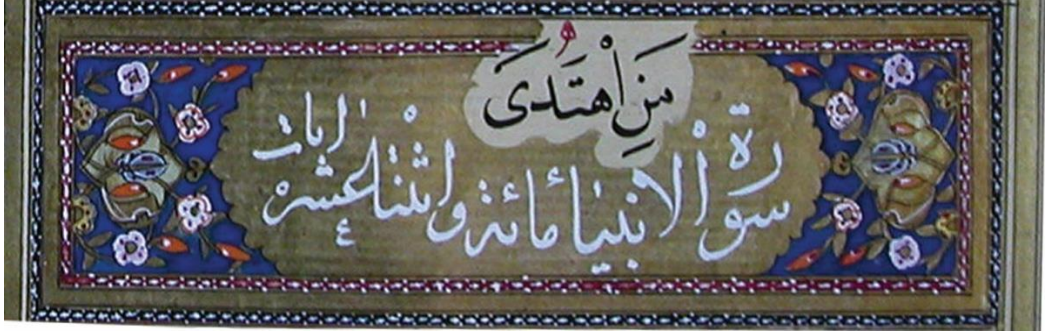 مَنِ اهْتَدَى
سورة الانبيا مائة واثنتا عشر ايات